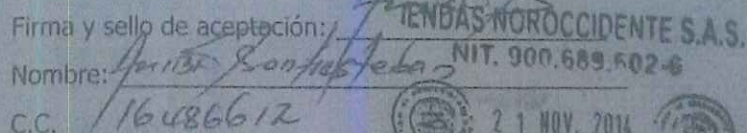 Firma y sello de aceptación: TIENDAS NOROCCIDENTE S.A.S.
NIT. 900.689.602-6
Nombre:
C.C. 16486612
21 NOV. 2014